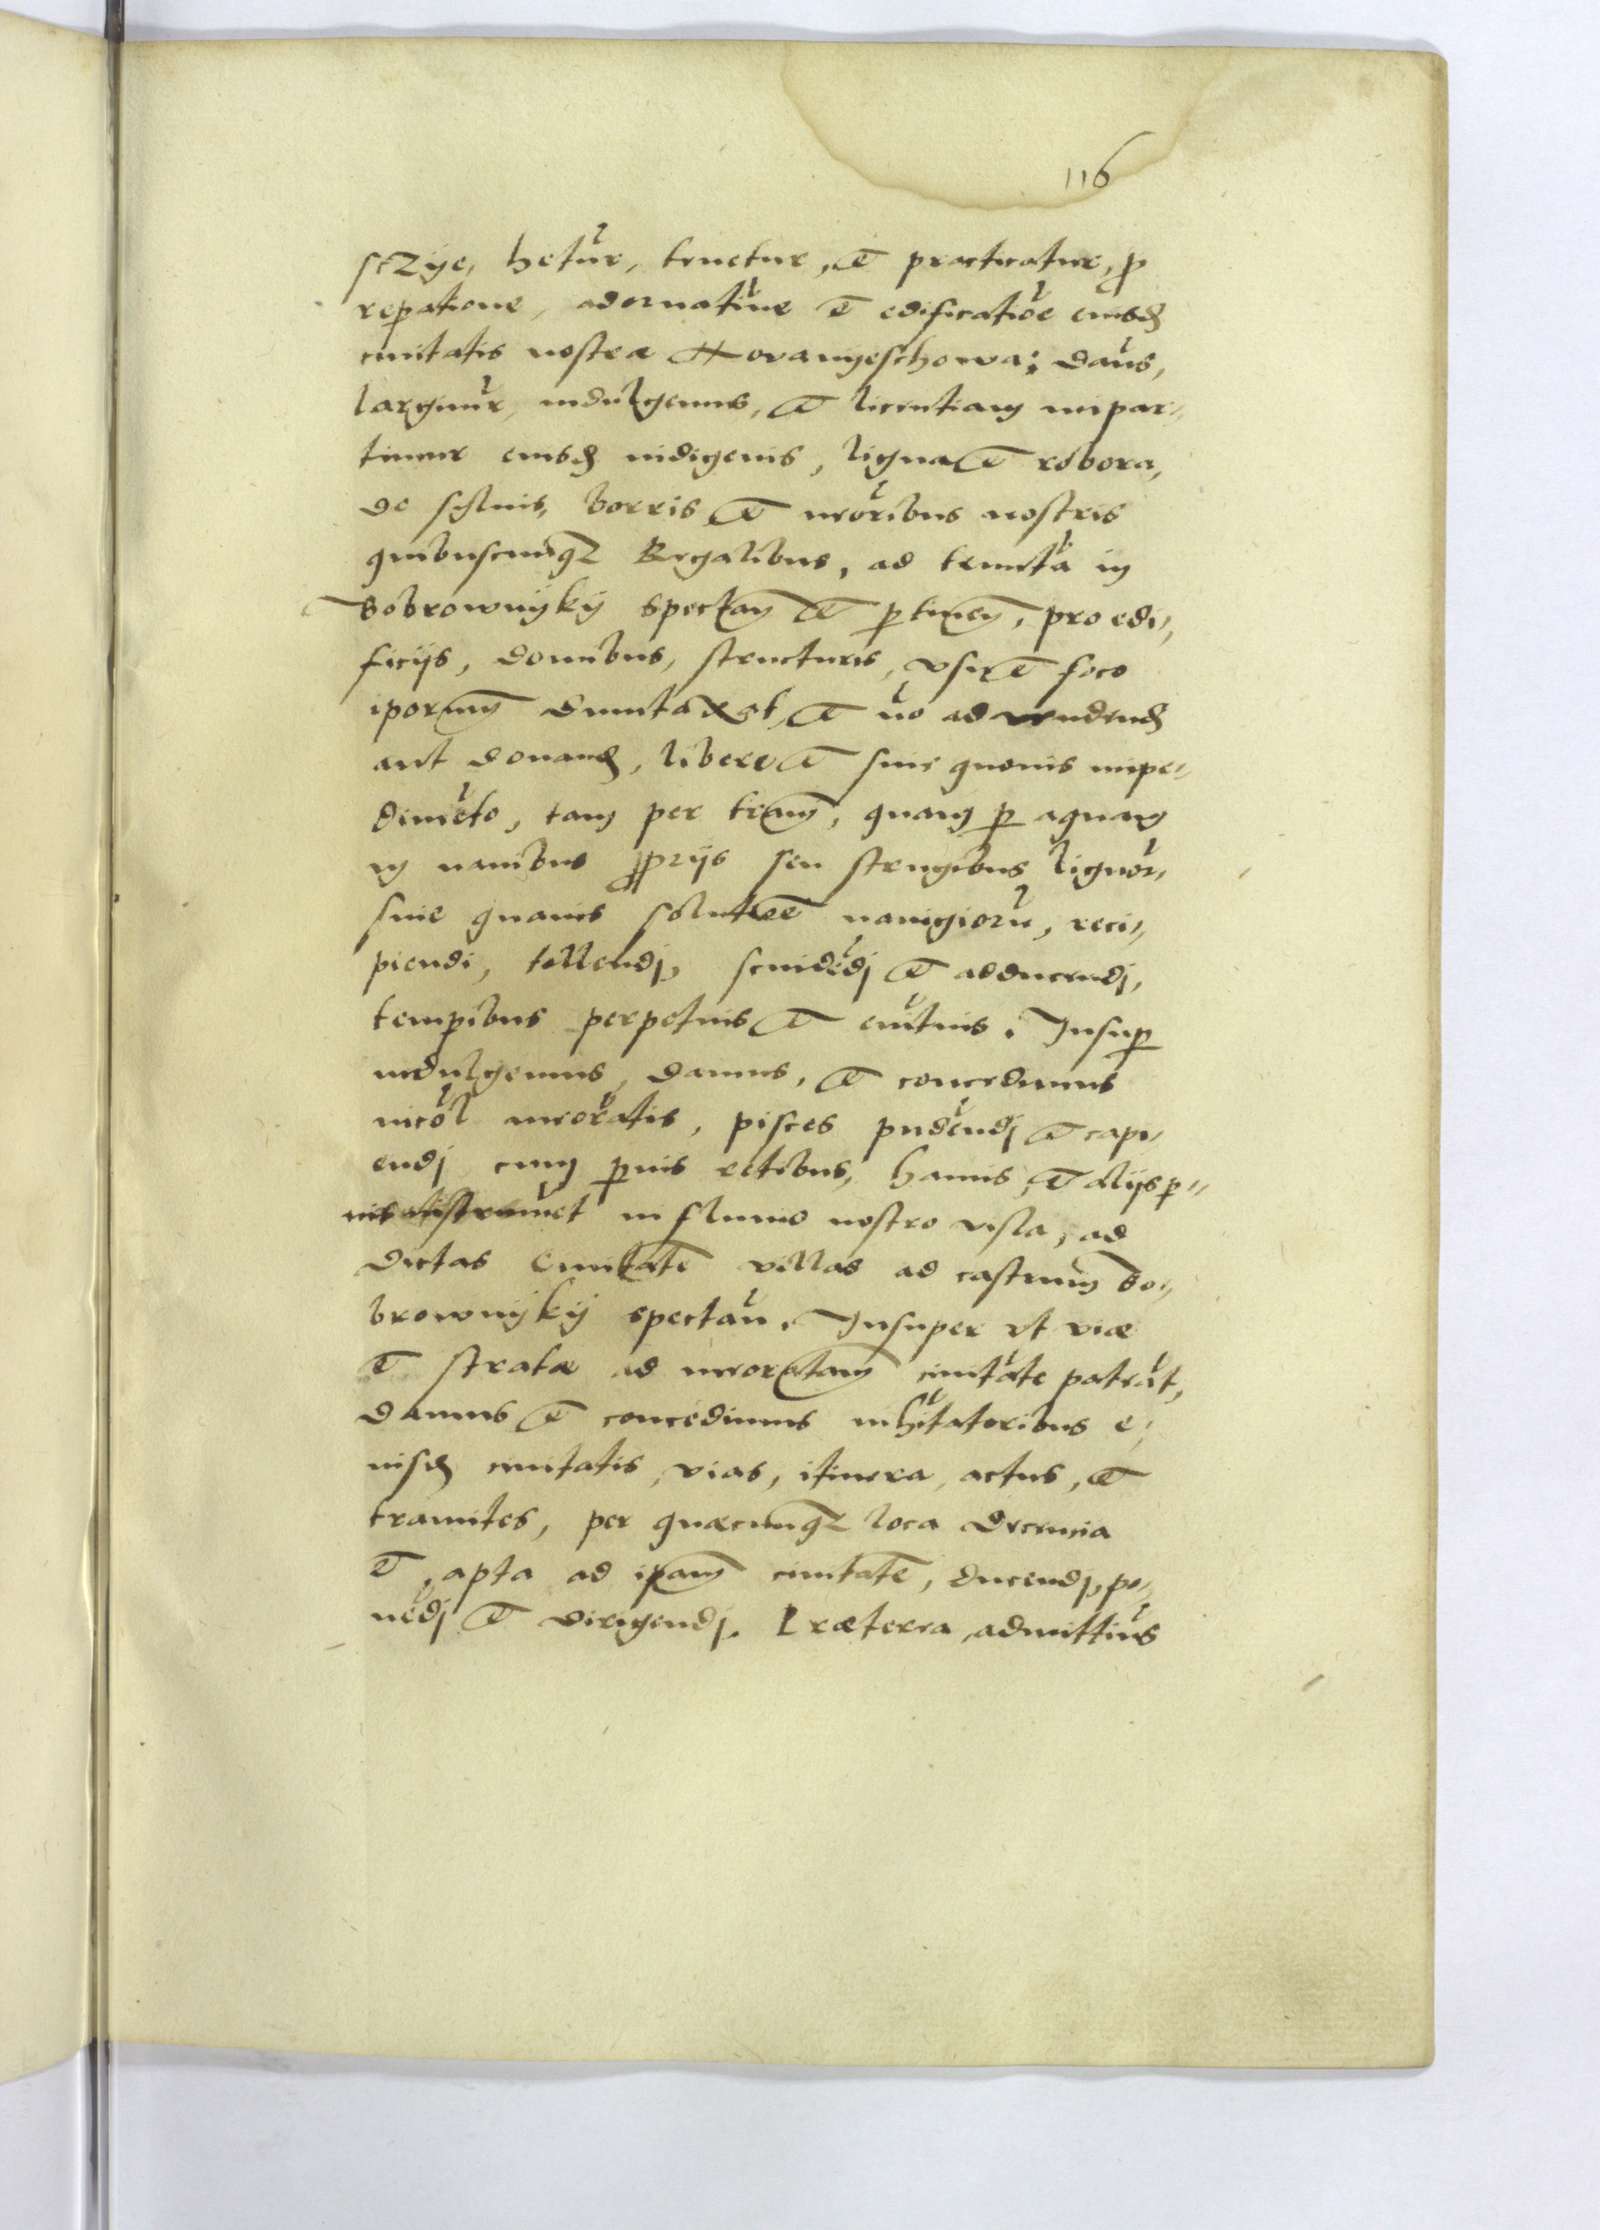 116
sczÿe, hetur, tenetur, et practicatur, p
repatione, adornatiue et edificatioe eiusd
ciuitatis nostræ Howanÿeschowa: Daus,
largimur, indulgemus, et licentiam impar„
timur eiusd indigenis, ligna et robora,
de syluis, borris et meoribus nostris
quibuscunqz Regalibus, ad tenuta in
Bobrownÿkÿ spectan et ptinen, pro edi„
ficijs, domibus, structuris, vsu et foco
iporum duntaxat, et no ad vendend
aut donand, libere et sine quouis impe„
dimeto, tam per tram, quam p aquam
in nauibus pprijs seu strugibus lignor,
siue quauis solutioe nauigioru, reci„
piendi, tollendj, scindedj et adducendj,
tempibus perpetuis et euituis. Insup
indulgemus, damus, et concedimus
incol meoratis, pisces pndendj et capi„
endj cum paruis retibus, hamis, et alijs p„
uis instrumet in fluuio nostro visla, ad
dictas Ciuitate villas ad castrum Bo„
brownÿkÿ spectan. Insuper vt viæ
et stratæ ad meoratam ciuitate pateat,
damus et concedimus inhitatoribus e„
iusd ciuitatis, vias, itinera, actus, et
tramites, per quæcunqz loca decencia
et apta ad ipam ciuitate, ducendj, po„
nedj et dirigendj. Præterea admittius